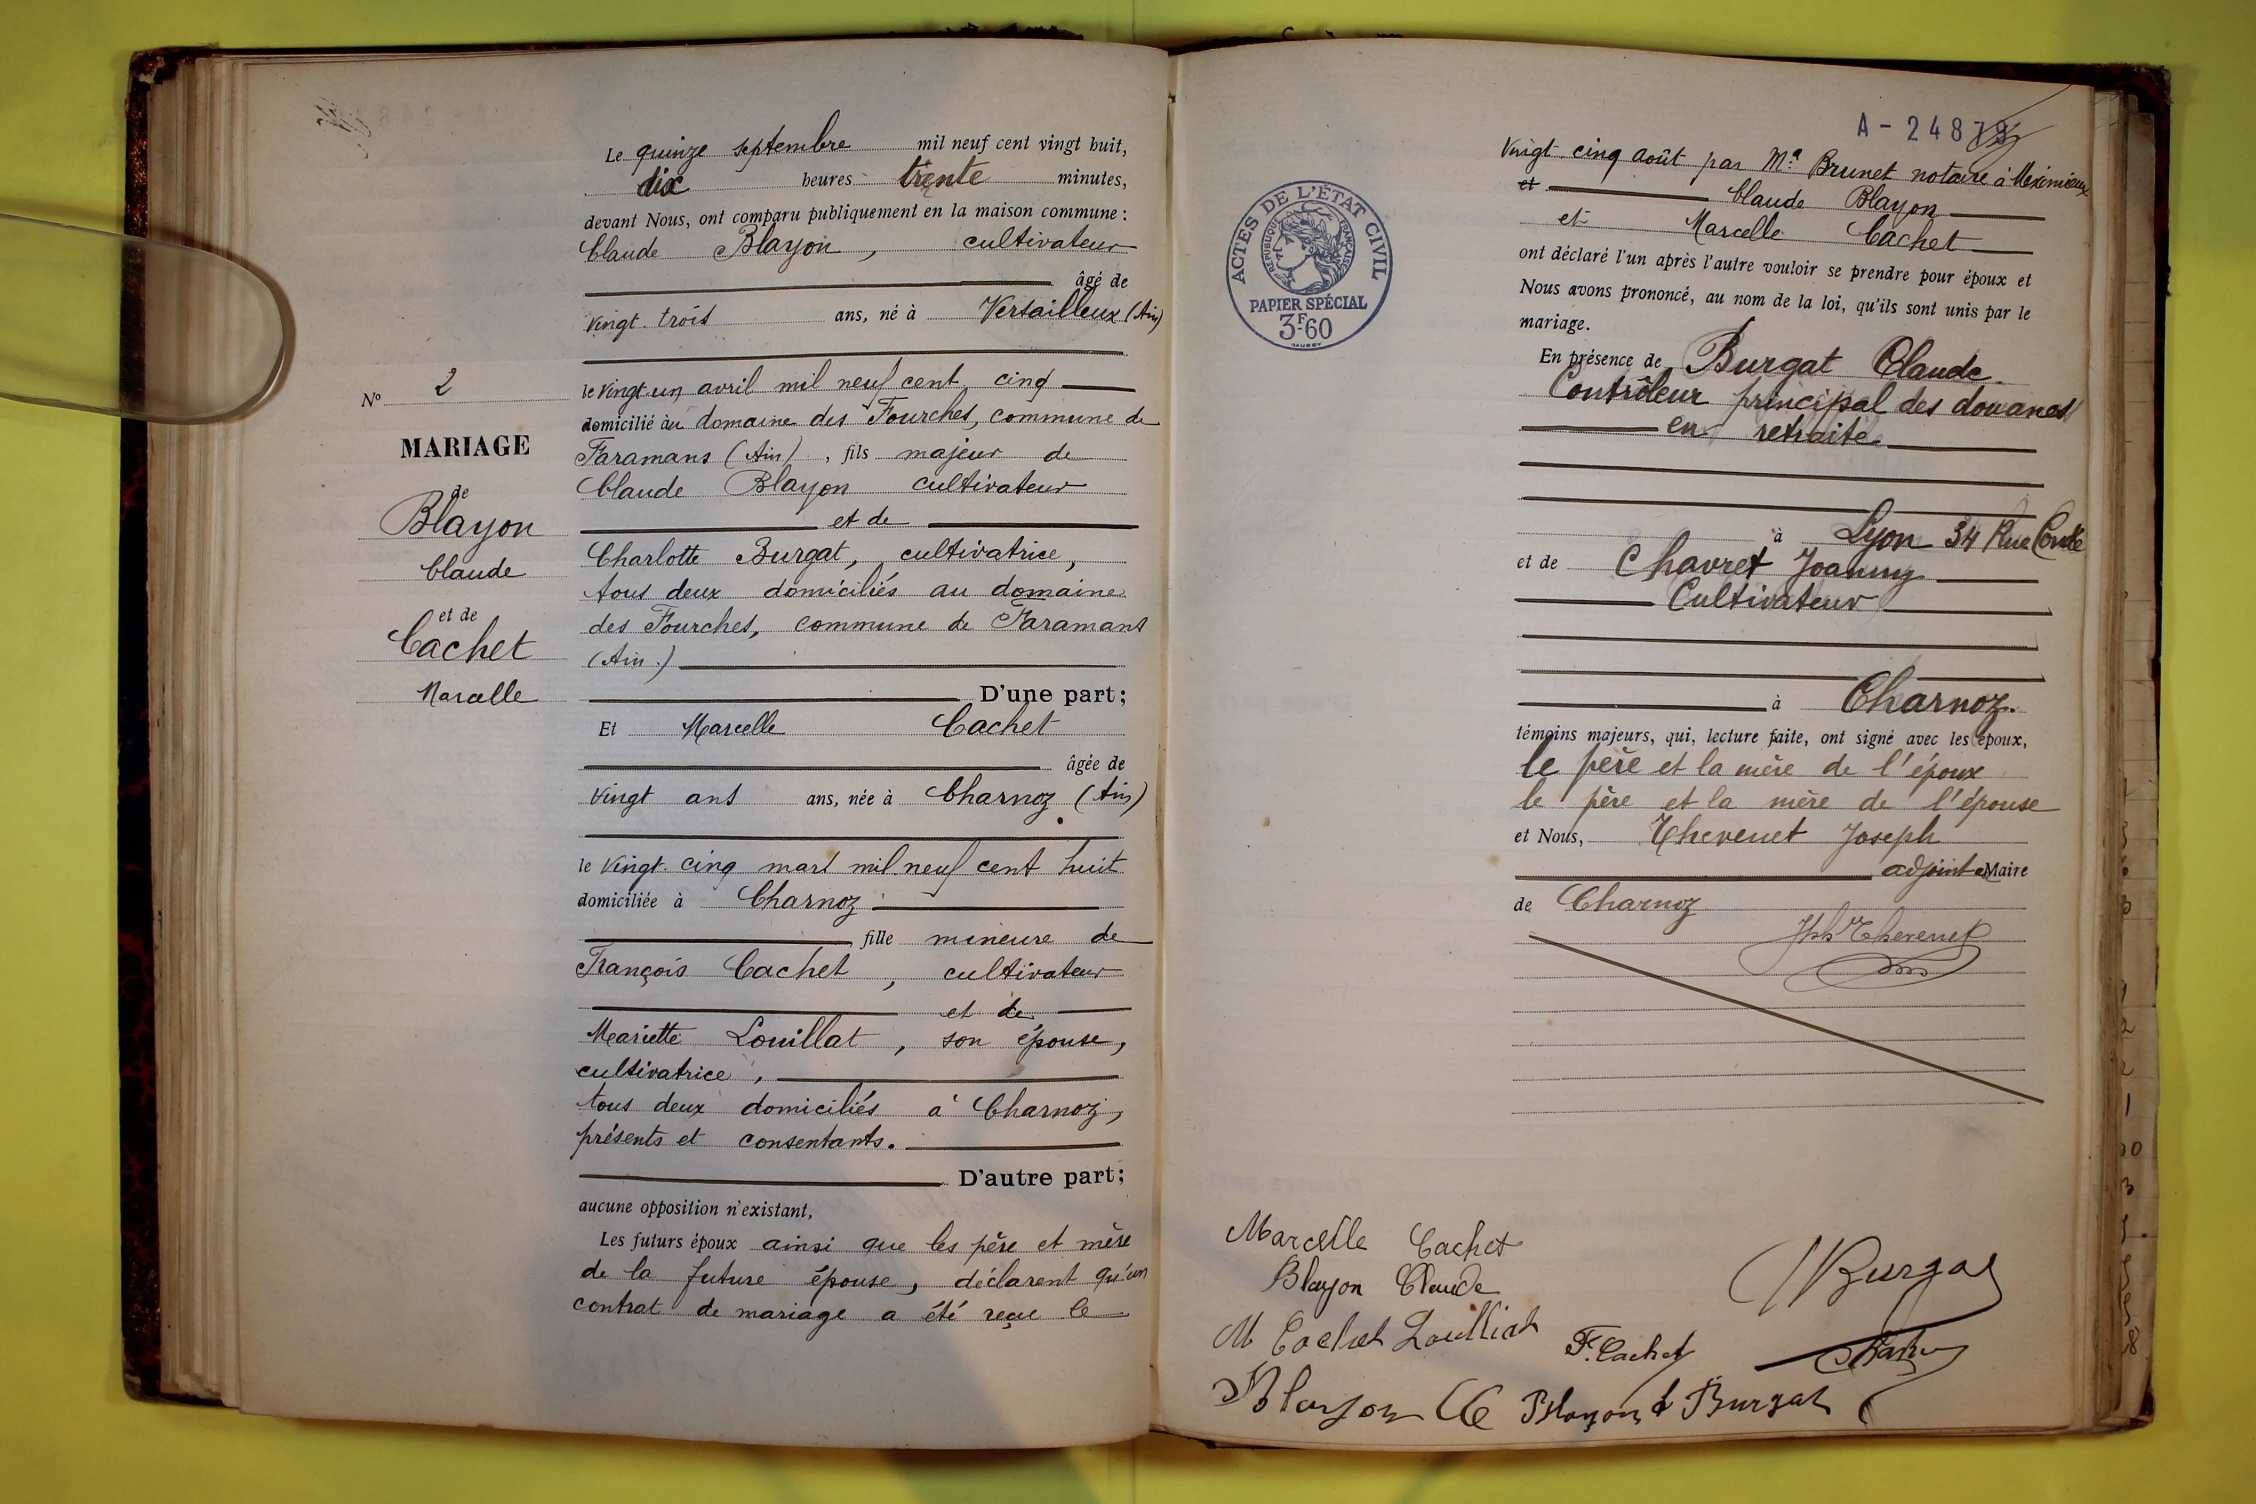 Le quinze septembre mil neuf cent vingt huit,
dix heures trente minutes,
devant Nous, ont comparu publiquement en la maison commune :
Claude Blayon, cultivateur
âgé de
vingt trois ans, né à Versailleux (Ain)
le vingt un avril mil neuf cent cinq
domicilié au domaine des Fourches, commune de
Faramans (Ain), fils majeur de
Claude Blayon cultivateur
et de
Charlotte Burgat, cultivatrice,
tous deux domiciliés au domaine
des Fourches, commune de Faramans
(Ain.)
D'une part;
Et Marcelle Cachet
âgée de
vingt ans ans, née à Charnoz (Ain)
le vingt-cinq mars mil neuf cent huit
domiciliée à Charnoz
fille mineure de
François Cachet, cultivateur
et de
Mariette Louillat, son épouse,
cultivatrice,
tous deux domiciliés à Charnoz,
présents et consentants.
D'autre part;
aucune opposition n'existant,
Les futurs époux ainsi que les père et mère
de la future épouse, déclarent qu'un
contrat de mariage a été reçu le
Nº 2
MARIAGE
de
Blayon
Claude
et de
Cachet
Marcelle
A - 24879
vingt-cinq août par Me Brunet notaire à Meximieux
et Claude Blayon
et Marcelle Cachet
ont déclaré l'un après l'autre vouloir se prendre pour époux et
Nous avons prononcé, au nom de la loi, qu'ils sont unis par le
mariage.
En présence de Burgat Claude
Contrôleur principal des douanes
en retraite
à Lyon 34 Rue Conté
et de Chavret Joanny
Cultivateur
à Charnoz.
témoins majeurs, qui, lecture faite, ont signé avec les époux,
le père et la mère de l'époux
le père et la mère de l'épouse
et Nous, Thevenet Joseph
adjoint Maire
de Charnoz
Jph Thevenet
ACTES DE L'ÉTAT CIVIL
RÉPUBLIQUE FRANÇAISE
PAPIER SPÉCIAL
3F60
Marcelle Cachet
Blayon Claude
Burgat
M Cachet Louillat
F. Cachet
Blayon Cde
Blayon Burgat